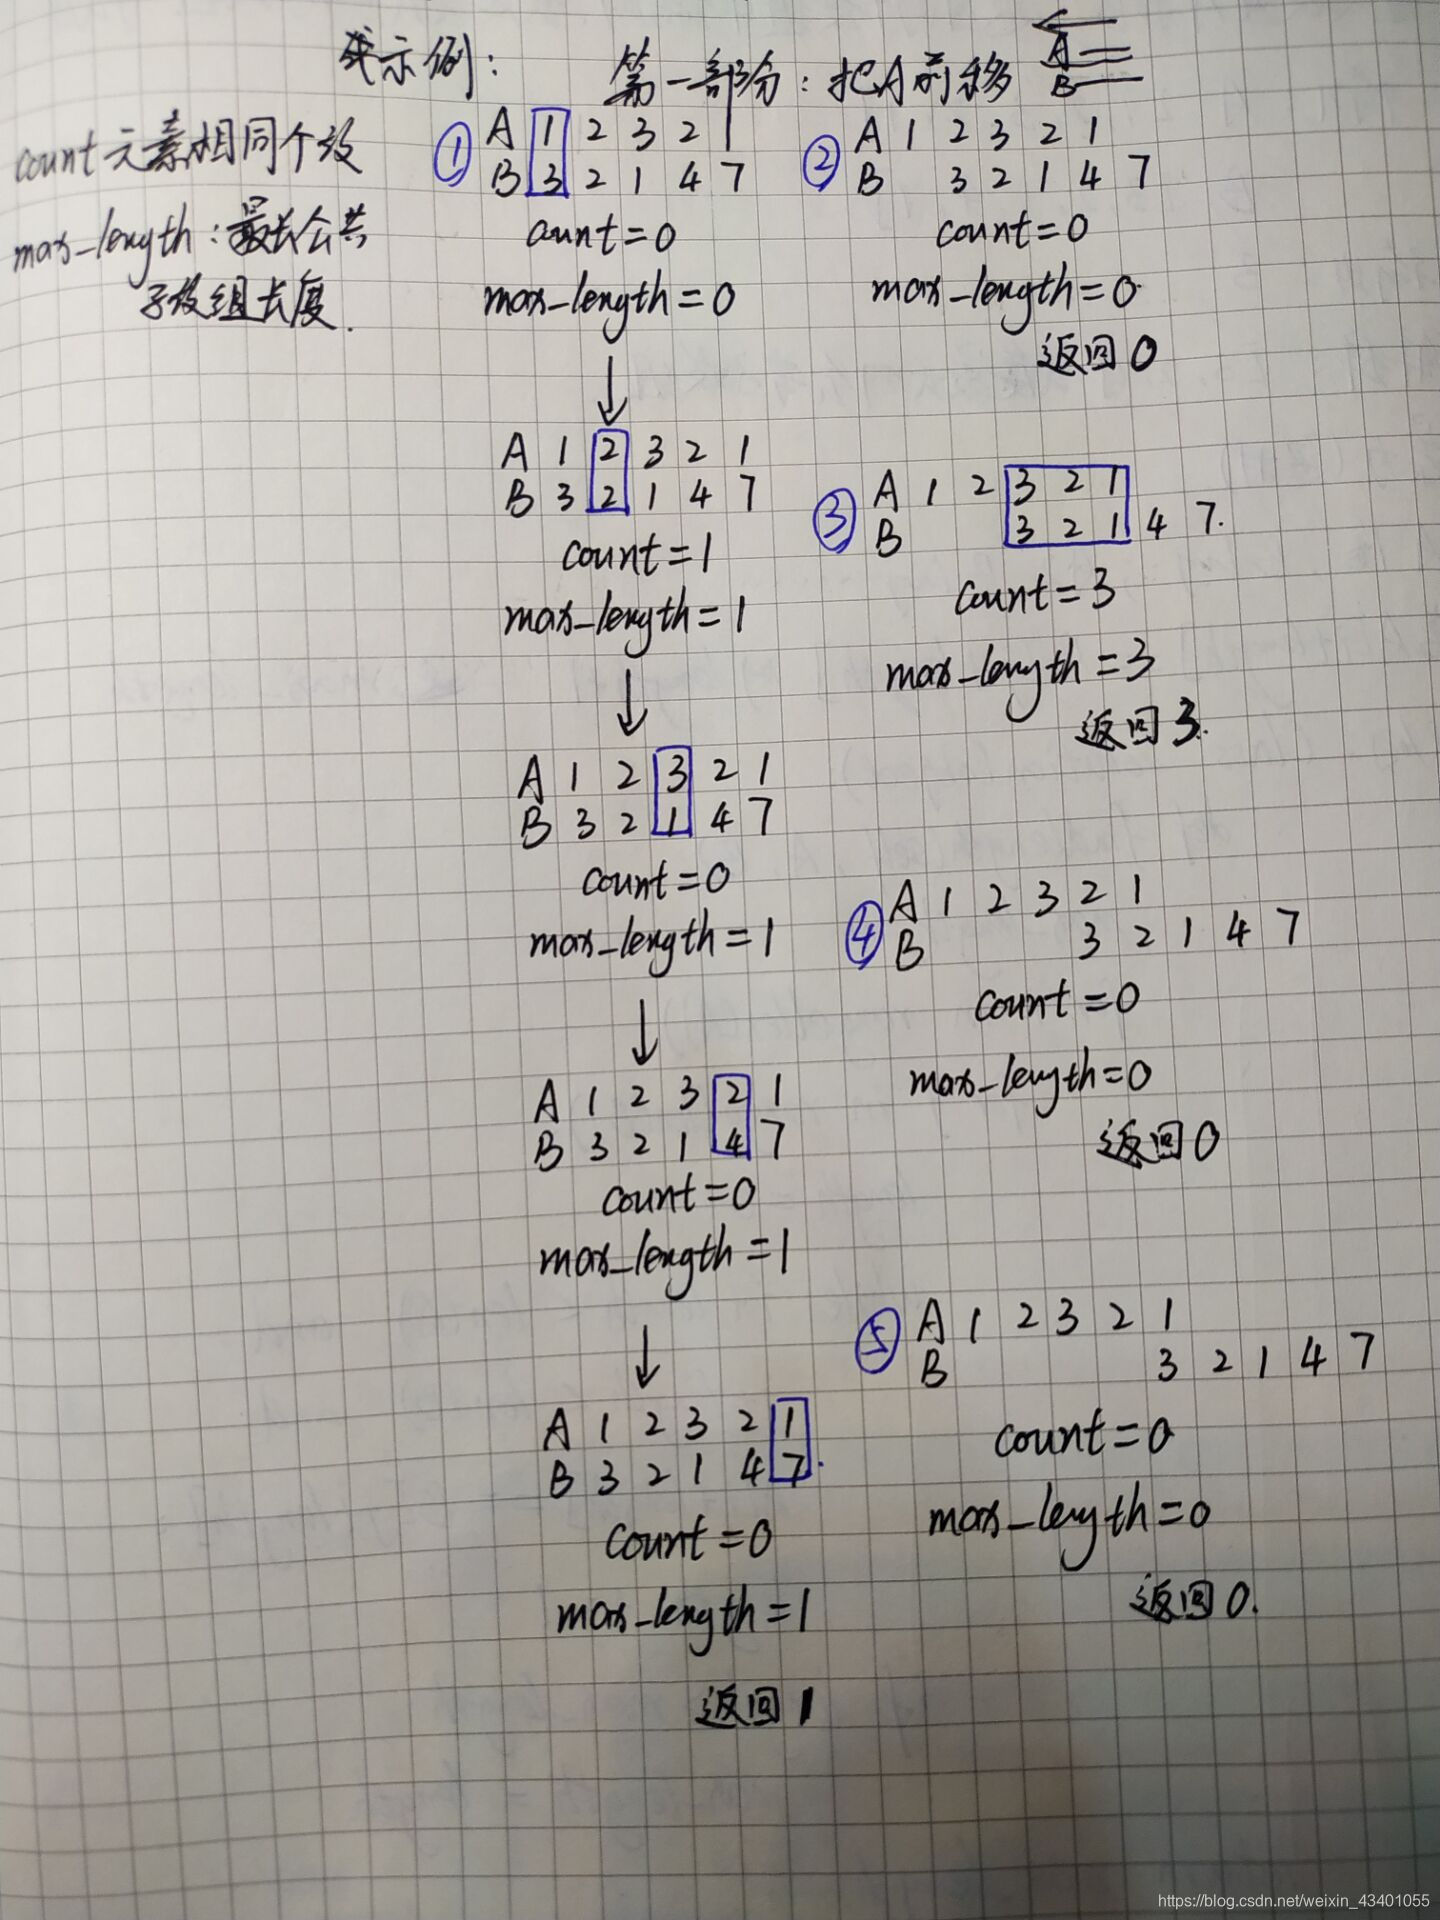 示例：
第一部分：把A前移
A
B
count 元素相同个数
max_length：最长公共
子数组长度.
① A 1 2 3 2 1
B 3 2 1 4 7
count=0
max_length=0
A 1 2 3 2 1
B 3 2 1 4 7
count=1
max_length=1
A 1 2 3 2 1
B 3 2 1 4 7
count=0
max_length=1
A 1 2 3 2 1
B 3 2 1 4 7
count=0
max_length=1
A 1 2 3 2 1
B 3 2 1 4 7.
count=0
max_length=1
返回1
② A 1 2 3 2 1
B 3 2 1 4 7
count=0
max_length=0
返回0
③ A 1 2 3 2 1
B 3 2 1 4 7.
count=3
max_length=3
返回3.
④ A 1 2 3 2 1
B 3 2 1 4 7
count=0
max_length=0
返回0
⑤ A 1 2 3 2 1
B 3 2 1 4 7
count=0
max_length=0
返回0.
https://blog.csdn.net/weixin_43401055